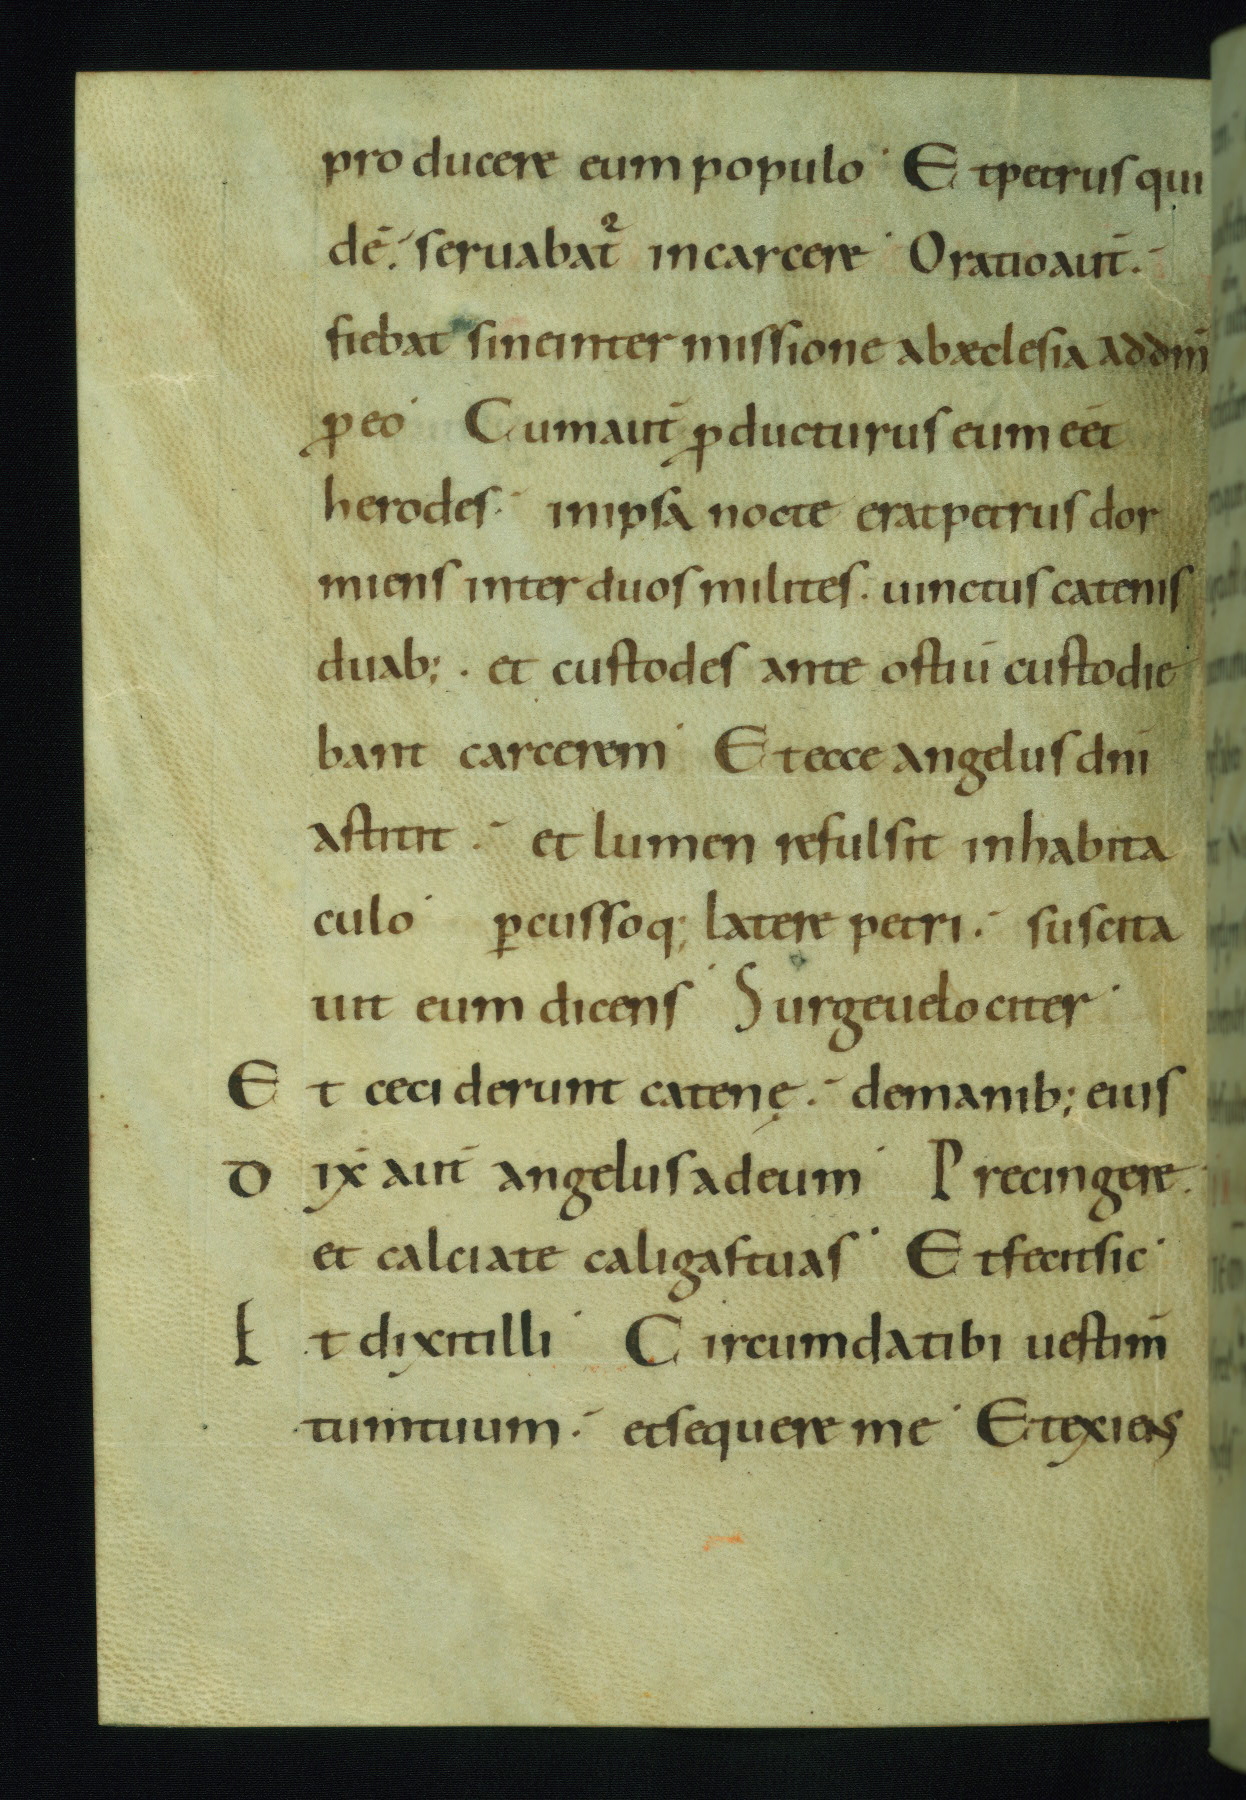 producere eum populo· Et petrus qui
dē· seruabat᷑ in carcere· Oratio aut̄·
fiebat sine intermissione ab æclesia ad dm̄
ꝓ eo· Cum aut̄ ꝓducturus eum eēt
herodes· in ipsa nocte erat petrus dor
miens inter duos milites· uinctus catenis
duab;· et custodes ante ostiū custodie
bant carcerem· Et ecce angelus dnī
astitit· et lumen refulsit in habita
culo· ꝑcussoq; latere petri· suscita
uit eum dicens· Surge uelociter·
Et ceciderunt catenę· de manib; eius
Dix̄ aut̄ angelus ad eum· Precingere·
et calcia te caligas tuas· Et fecit sic·
Et dixit illi· Circumda tibi uestim̄
tum tuum· et sequere me· Et exiens